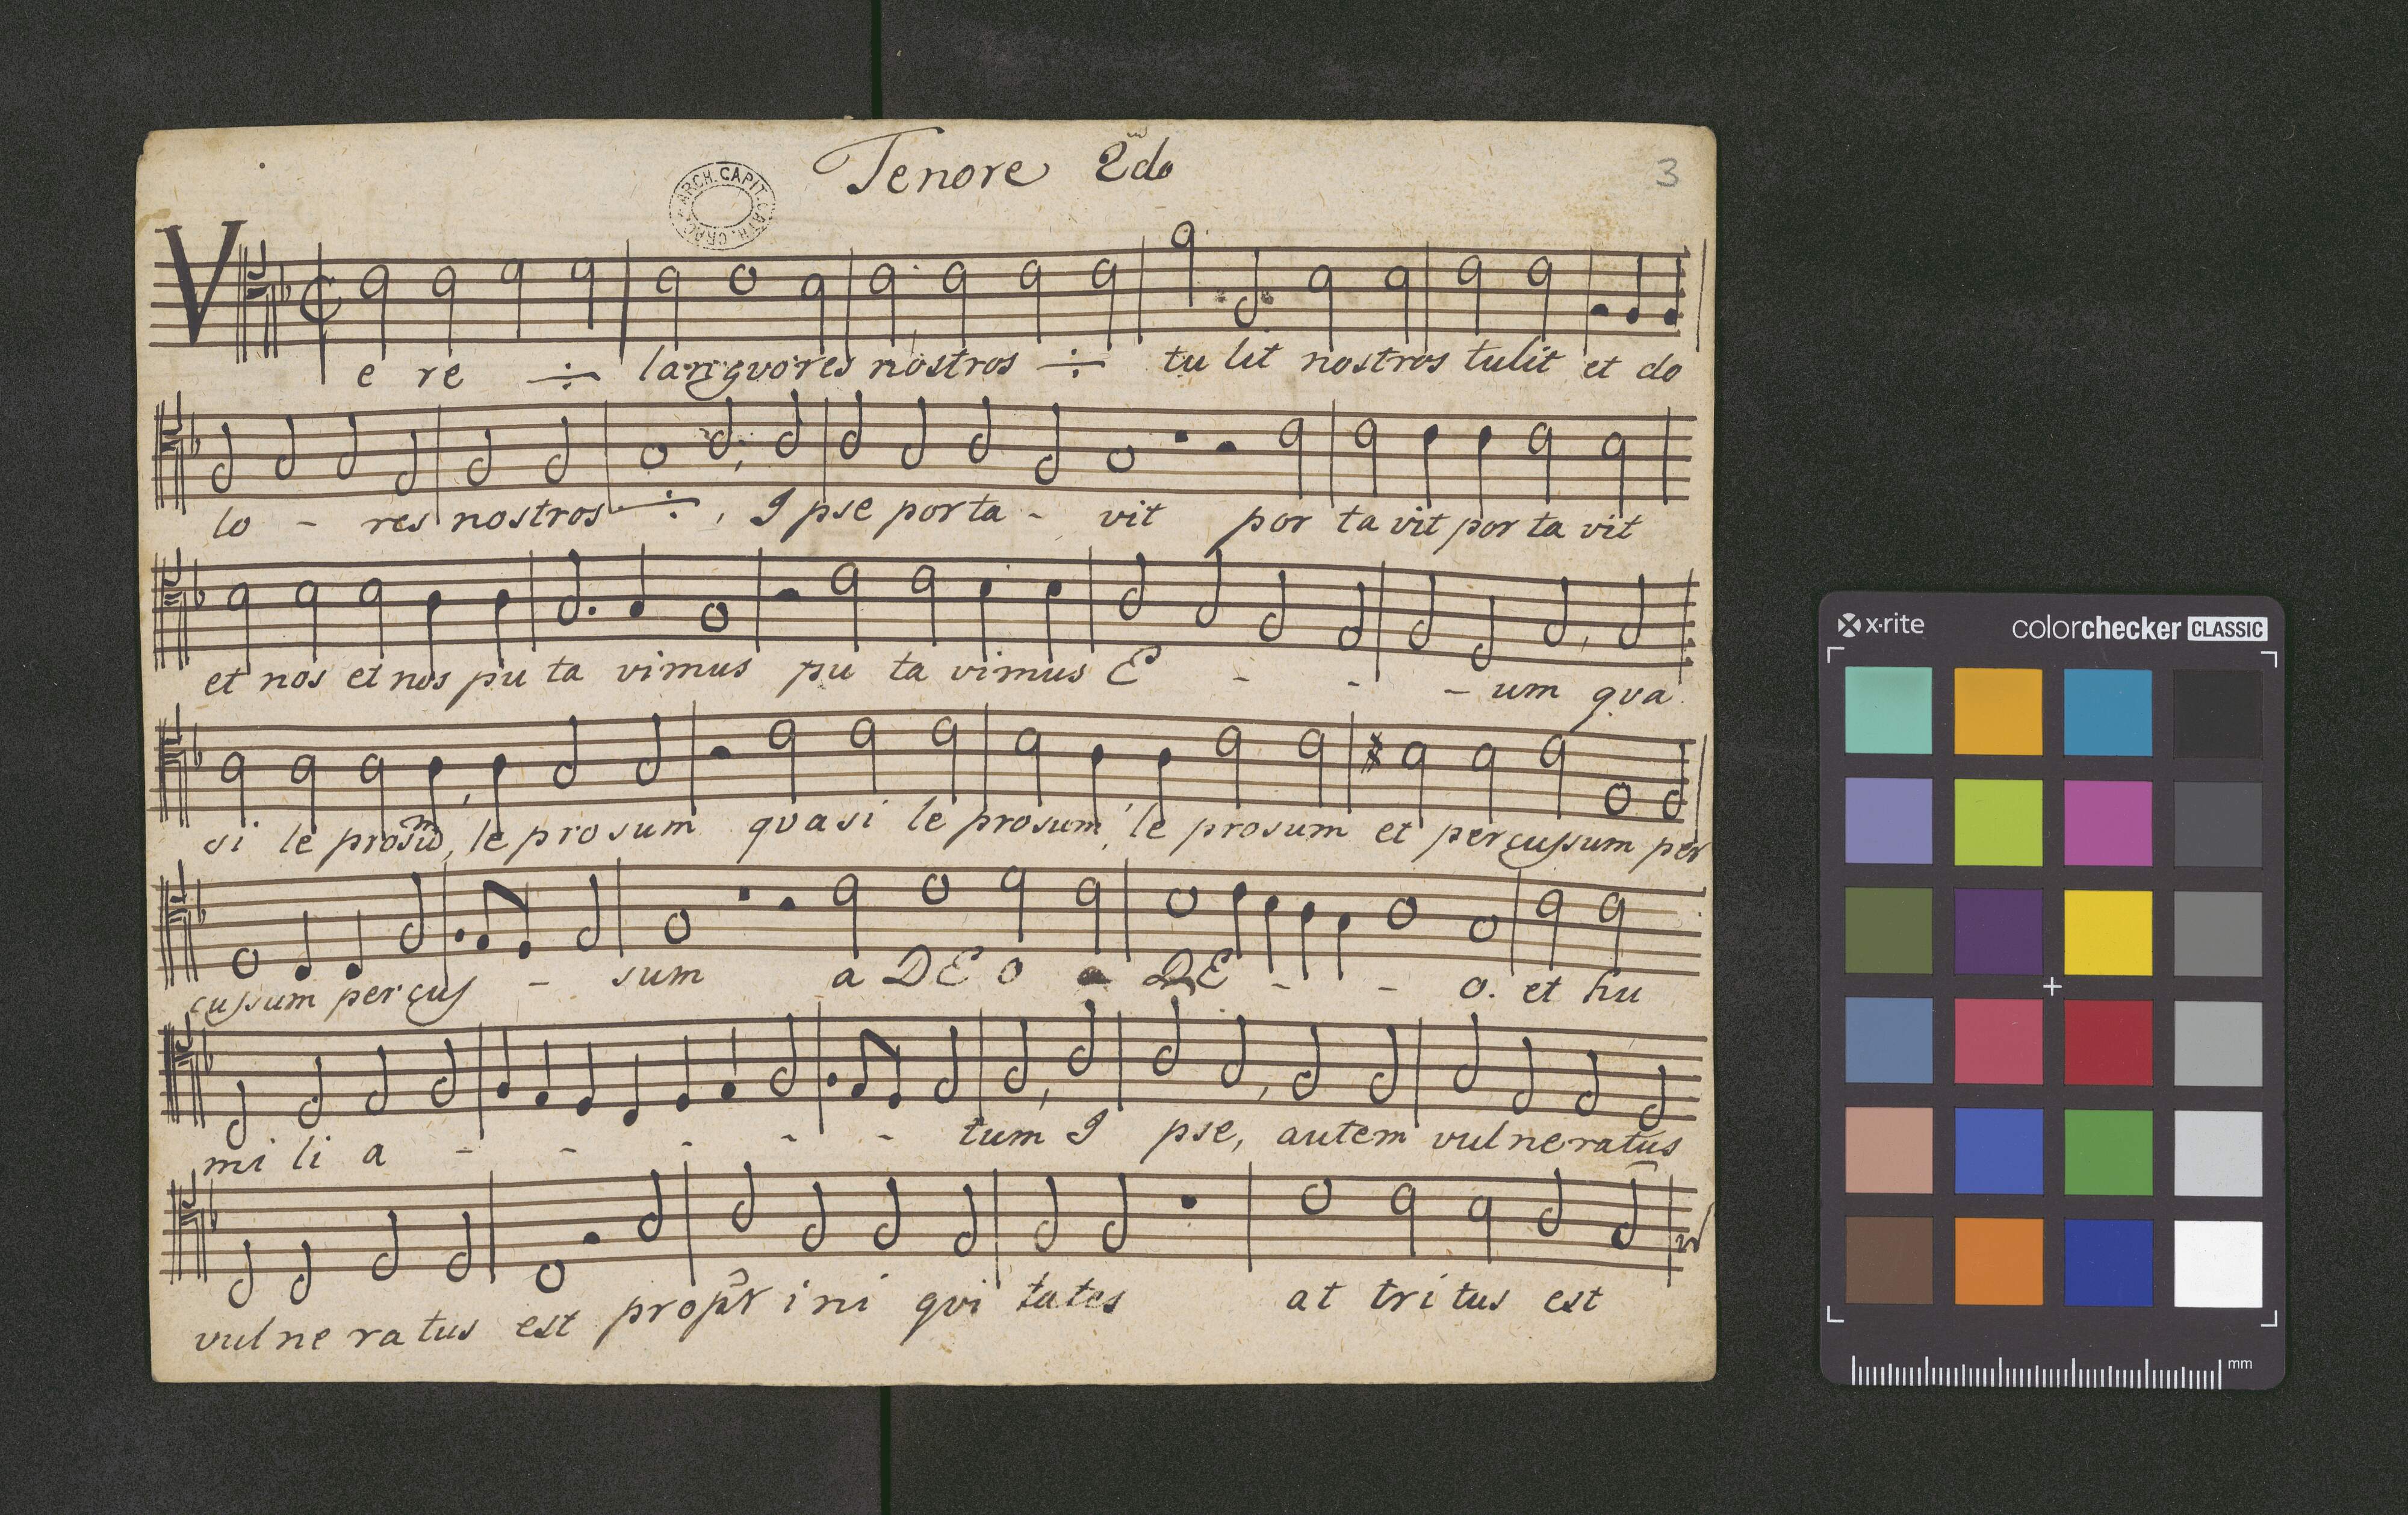 Tenore 2do
3
ARCH. CAPIT. CATH. CRAC.
Vere ÷ langvores nostros ÷ tulit nostros tulit et do
lo - res nostros ÷, Ipse porta - vit por ta vit por ta vit
et nos et nos pu ta vimus pu ta vimus E - - - um qva
si le prosũm, le prosum qvasi le prosum, le prosum et percussum per
cussum per cus - sum a DEO a DE - - o. et hu
mi li a - - - - - tum I pse, autem vulneratus
vulneratus est proptr ini qvi tates at tri tus est
x-rite
colorchecker CLASSIC
mm